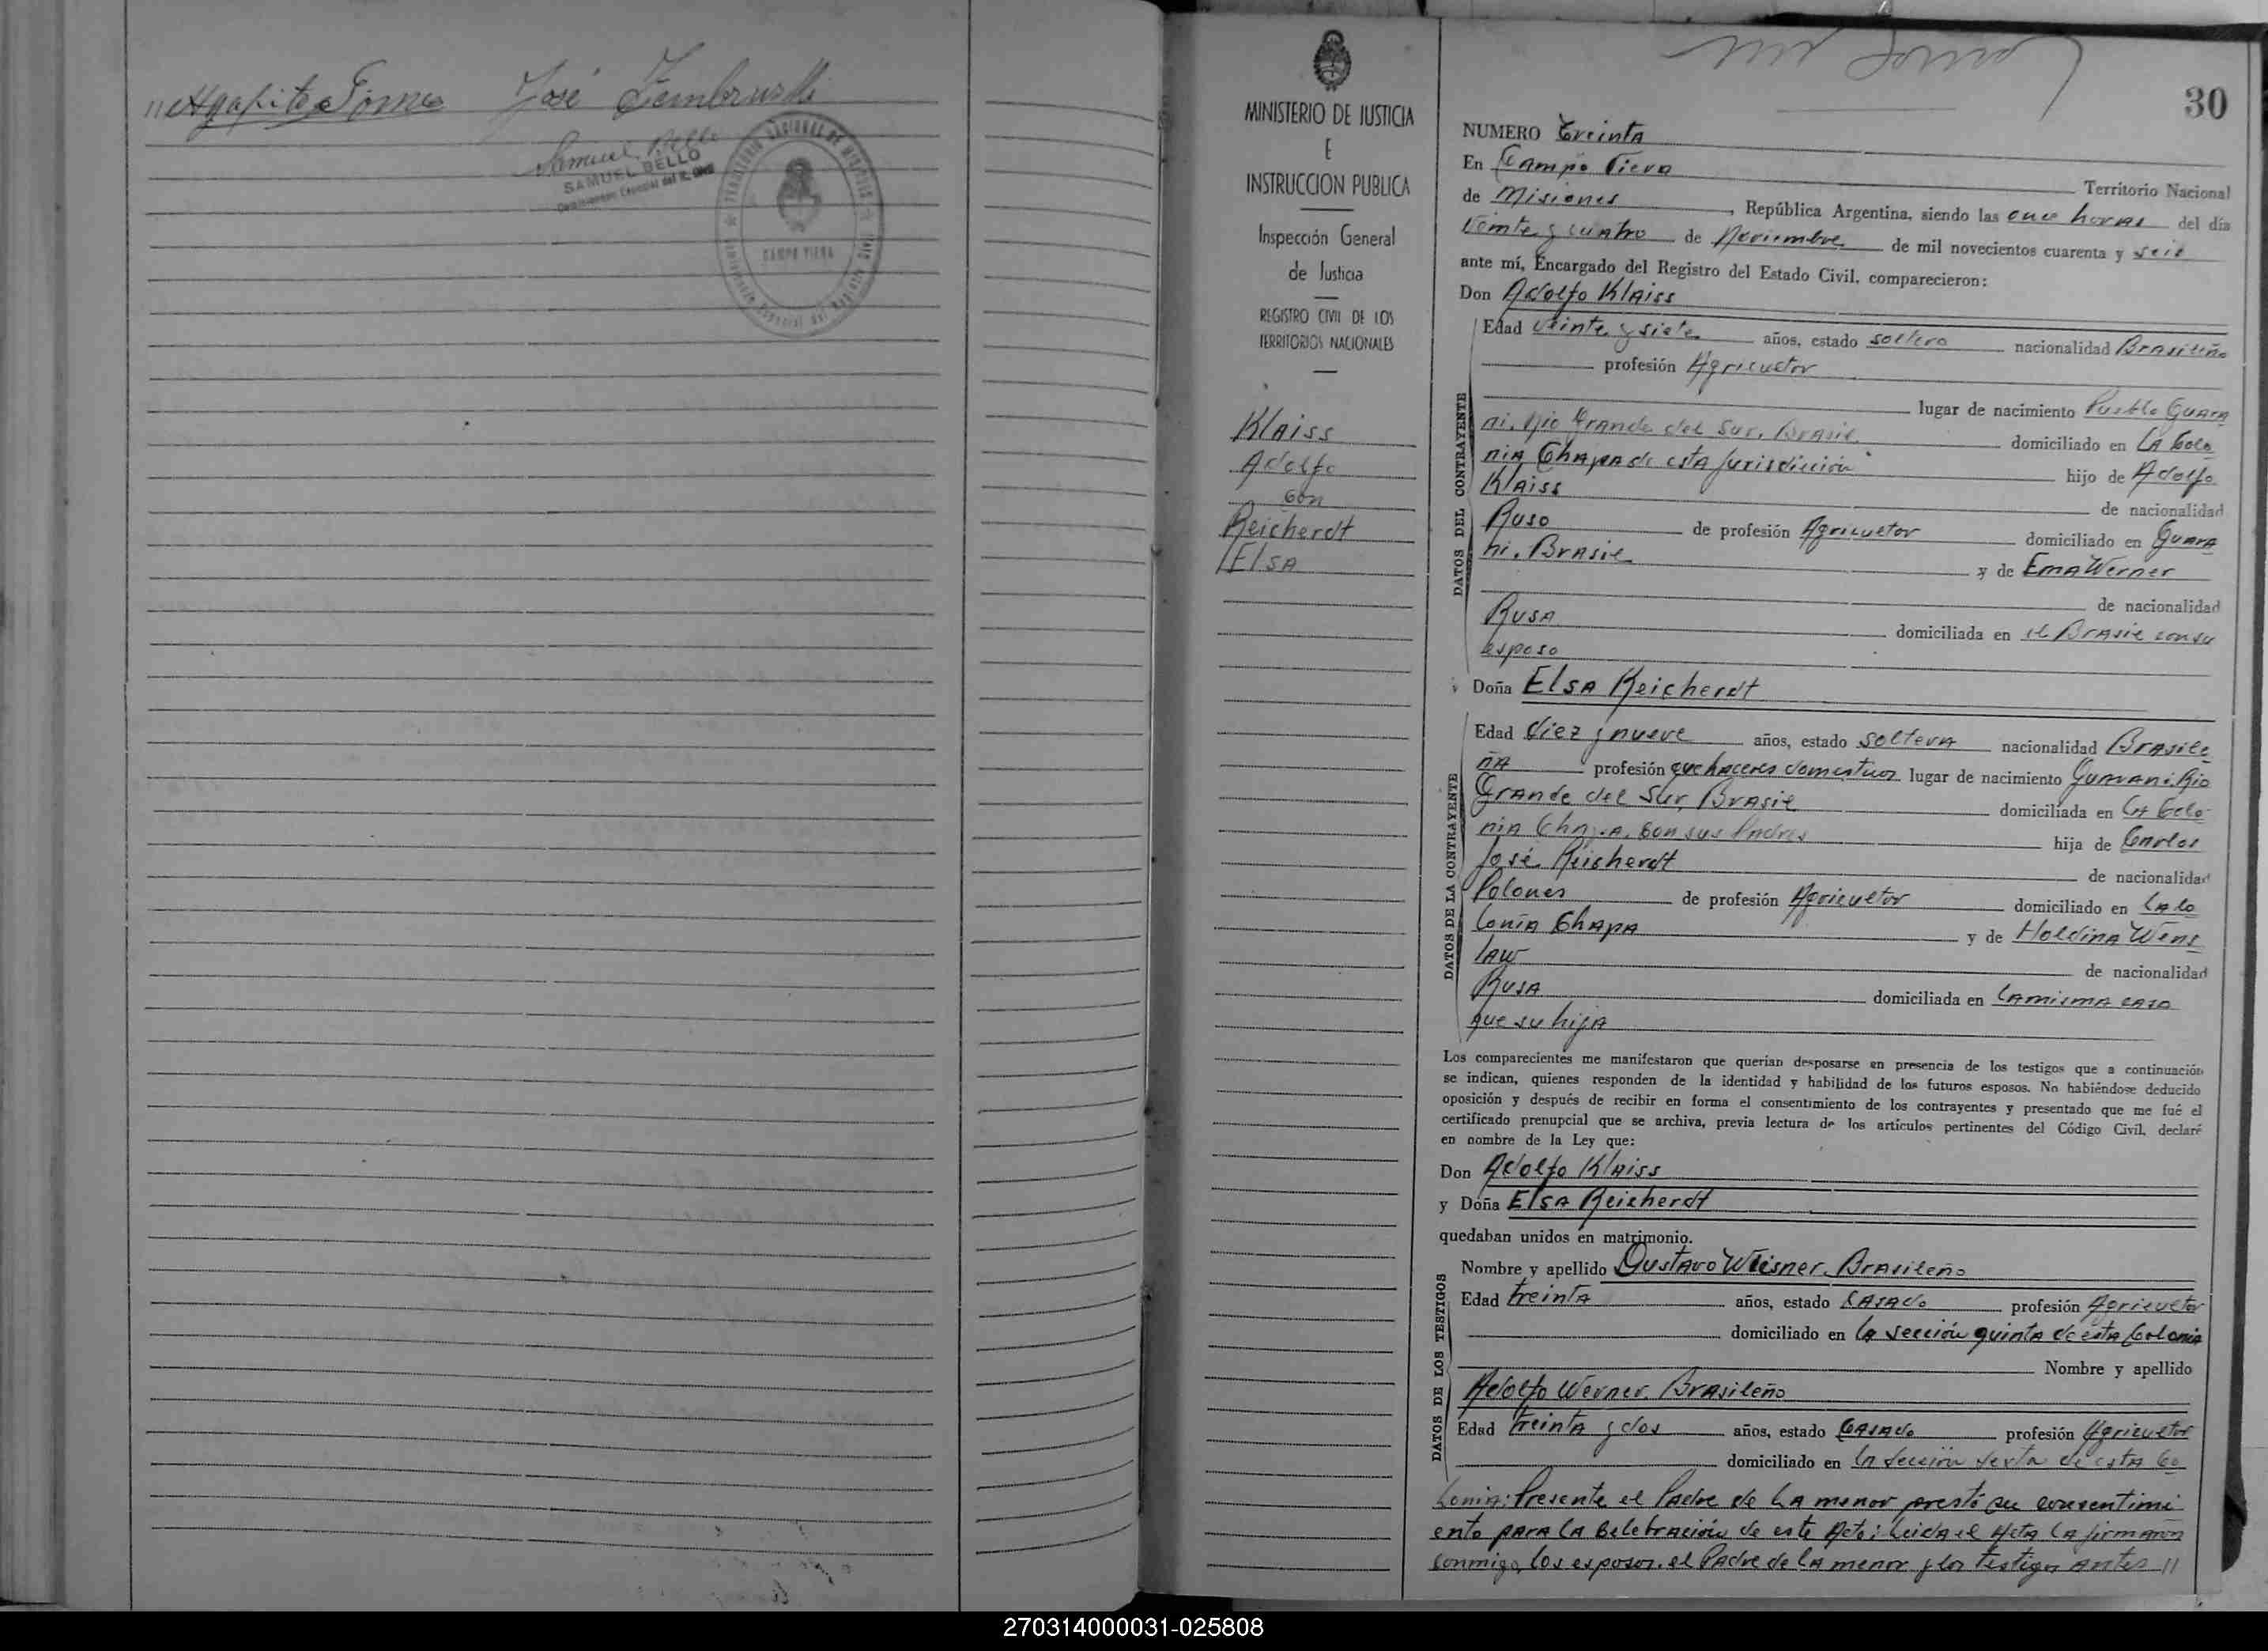 José
Samuel Bello
SAMUEL BELLO
CAMPO VIERA
30
MINISTERIO DE JUSTICIA
E
INSTRUCCION PUBLICA
Inspección General
de Justicia
REGISTRO CIVIL DE LOS
TERRITORIOS NACIONALES
Klaiss
Adolfo
con
Reicherdt
Elsa
NUMERO Treinta
En Campo Viera Territorio Nacional
de Misiones, República Argentina, siendo las once horas del día
Veinte y cuatro de Noviembre de mil novecientos cuarenta y seis
ante mí, Encargado del Registro del Estado Civil, comparecieron:
Don Adolfo Klaiss
Edad veinte y siete años, estado soltero nacionalidad Brasileño
profesión Agricultor
lugar de nacimiento Pueblo Guara
ni. Rio Grande del Sur. Brasil domiciliado en La Colo
nia Chapa de esta jurisdicción hijo de Adolfo
Klaiss de nacionalidad
Ruso de profesión Agricultor domiciliado en Guara
ni. Brasil y de Ema Werner
de nacionalidad
Rusa domiciliada en el Brasil con su
esposo
Doña Elsa Reicherdt
Edad diez y nueve años, estado soltera nacionalidad Brasile
ña profesión quehaceres domesticos lugar de nacimiento Guarani. Rio
Grande del Sur, Brasil domiciliada en La Colo
nia Chapa. con sus Padres hija de Carlos
José Reicherdt de nacionalidad
Polones de profesión Agricultor domiciliado en La Co
lonia Chapa y de Holdina Wens
law de nacionalidad
Rusa domiciliada en La misma casa
que su hija
Los comparecientes me manifestaron que querían desposarse en presencia de los testigos que a continuación
se indican, quienes responden de la identidad y habilidad de los futuros esposos. No habiéndose deducido
oposición y después de recibir en forma el consentimiento de los contrayentes y presentado que me fué el
certificado prenupcial que se archiva, previa lectura de los artículos pertinentes del Código Civil, declaré
en nombre de la Ley que:
Don Adolfo Klaiss
y Doña Elsa Reicherdt
quedaban unidos en matrimonio.
Nombre y apellido Gustavo Wiesner. Brasileño
Edad treinta años, estado casado profesión Agricultor
domiciliado en la sección quinta de esta Colonia
Nombre y apellido
Adolfo Werner. Brasileño
Edad treinta y dos años, estado casado profesión Agricultor
domiciliado en la sección sexta de esta Co
lonia: Presente el Padre de la menor prestó su consentimi
ento para la celebración de este Acto: Leida el Acta la firmaron
conmigo, los esposos. el Padre de la menor y los testigos antes //
DATOS DEL CONTRAYENTE
DATOS DE LA CONTRAYENTE
DATOS DE LOS TESTIGOS
270314000031-025808